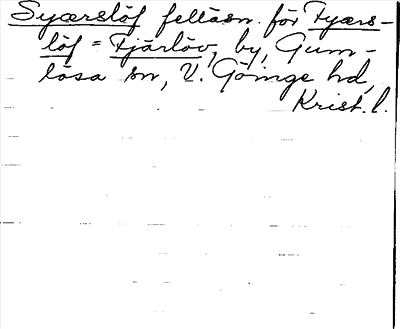 Syærsløf felläsn. för Fyærs-
løf = Fjärlöv, by, Gum-
lösa sn, V. Göinge hd,
Krist. l.